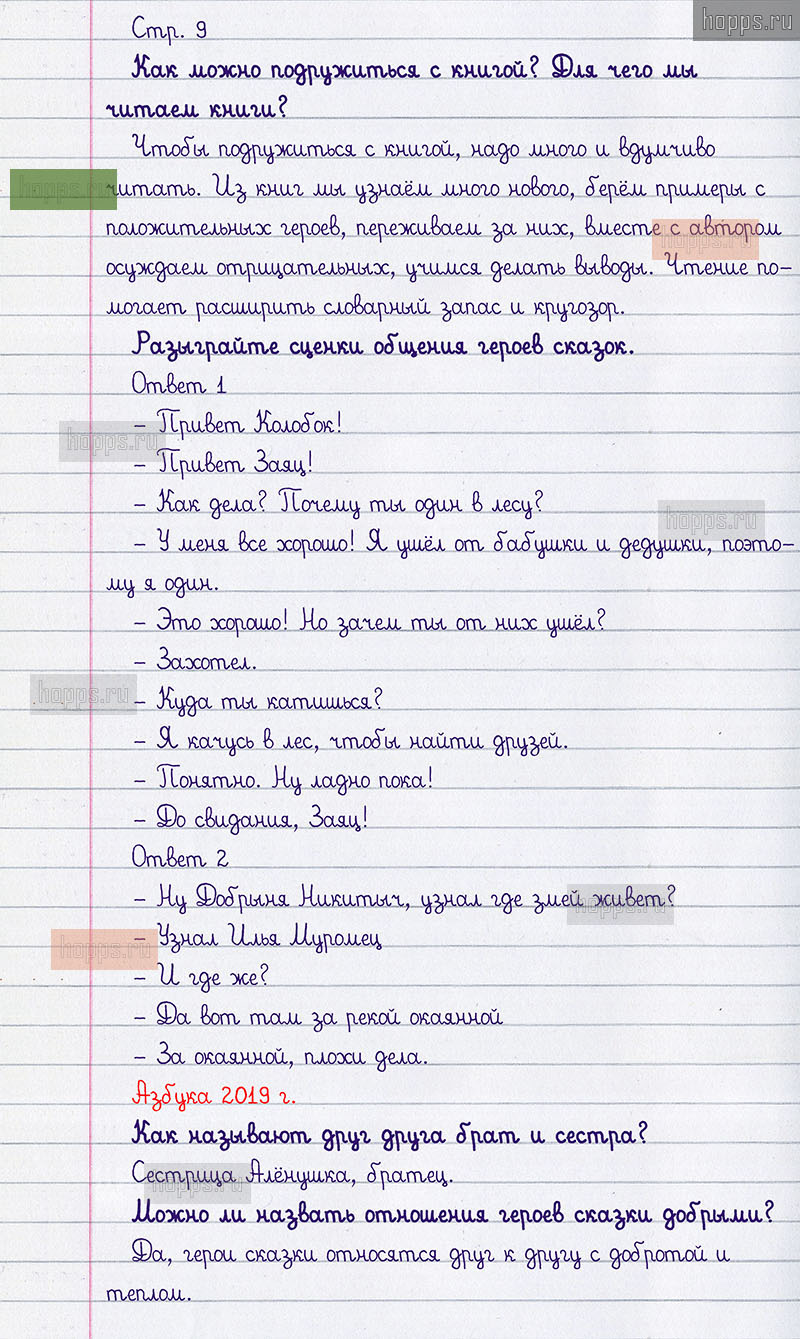 hopps.ru
Стр. 9
Как можно подружиться с книгой? Для чего мы
читаем книги?
Чтобы подружиться с книгой, надо много и вдумчиво
hopps.ru
читать. Из книг мы узнаём много нового, берём примеры с
положительных героев, переживаем за них, вместе с автором
hopps.ru
осуждаем отрицательных, учимся делать выводы. Чтение по-
могает расширить словарный запас и кругозор.
Разыграйте сценки общения героев сказок.
Ответ 1
– Привет Колобок!
hopps.ru
– Привет Заяц!
– Как дела? Почему ты один в лесу?
hopps.ru
– У меня все хорошо! Я ушёл от бабушки и дедушки, поэто-
му я один.
– Это хорошо! Но зачем ты от них ушёл?
– Захотел.
hopps.ru
– Куда ты катишься?
– Я качусь в лес, чтобы найти друзей.
– Понятно. Ну ладно пока!
– До свидания, Заяц!
Ответ 2
– Ну Добрыня Никитыч, узнал где змей живет?
hopps.ru
– Узнал Илья Муромец
hopps.ru
– И где же?
– Да вот там за рекой окаянной
– За окаянной, плохи дела.
Азбука 2019 г.
Как называют друг друга брат и сестра?
Сестрица Алёнушка, братец.
hopps.ru
Можно ли назвать отношения героев сказки добрыми?
Да, герои сказки относятся друг к другу с добротой и
теплом.